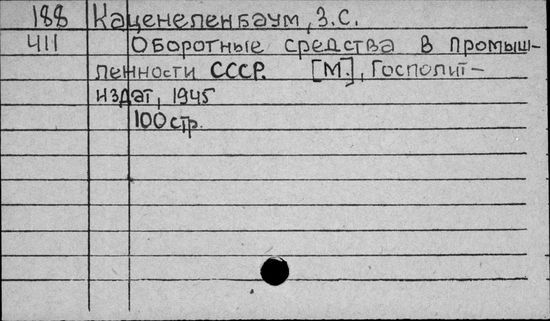 188 Каценеленбаум, З.С.
411 Оборотные средства в промыш-
ленности СССР. [М.], Госполит-
издат, 1945
100 стр.